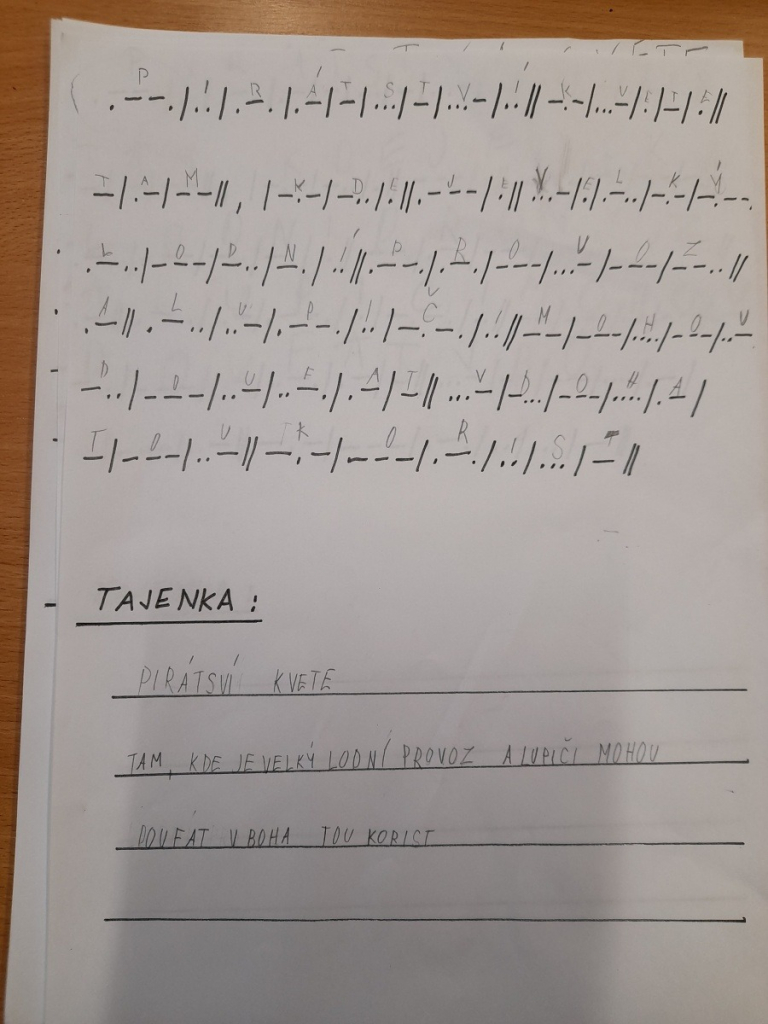 P I R Á T S T V Í K V E T E
.--./../.-./.-/-/.../-/...-/..//-.-/...-/./-/.//
T A M K D E J E V E L K Ý
-/.-/--//, /-.-/-.././/.---/.//...-/./.-../-.-/-.--
L O D N Í P R O V O Z
.-../---/-../-./..//.--./.-./---/...-/---/--..//
A L U P I Č I M O H O U
.-//.-../..-/.--./../-.-./..//--/---/..../---/..-
D O U F A T V B O H A
-../---/..-/..-./.-/-//...-/-.../---/..../.-/
T O U K O R I S T
-/---/..-//-.-/---/.-./../.../-//
TAJENKA:
PIRÁTSVÍ KVETE
TAM, KDE JE VELKÝ LODNÍ PROVOZ A LUPIČI MOHOU
DOUFAT V BOHA TOU KORIST